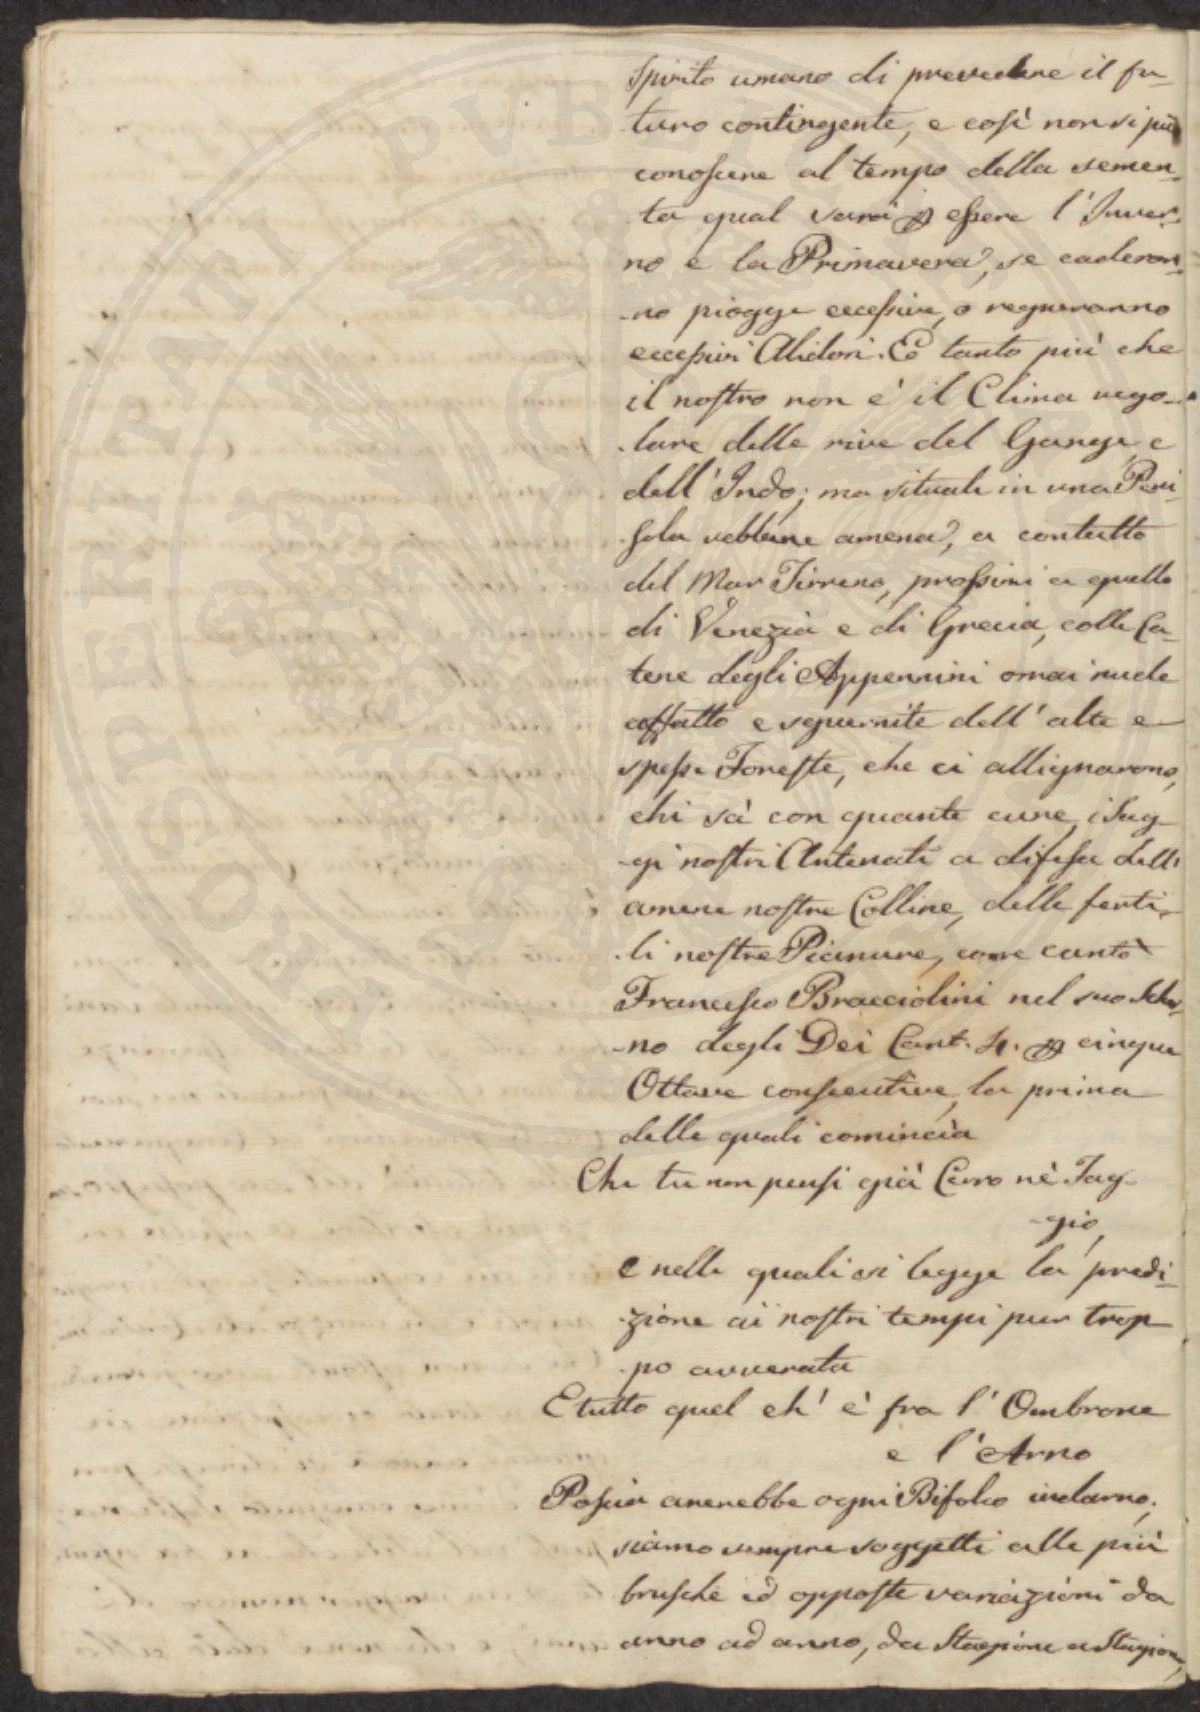 Spirito umano di prevedere il fu-
turo contingente, e così non si può
conoscere al tempo della semen-
-ta qual sarà per essere l'Inver-
no e la Primavera, se caderan-
-no piogge eccessive, o regneranno
eccessivi Alidori. E tanto più che
il nostro non è il Clima rego-
-lare delle rive del Gange, e
dell'Indo; ma situati in una Peni-
-sola sebbene amena, a contatto
del Mar Tirreno, prossimi a quello
di Venezia e di Grecia, colle Ca-
tene degli Appennini omai nude
affatto e sguernite dell'alte e
spesse Foreste, che ci allignarono,
chi sà con quante cure, i Sag-
-gi nostri Antenati a difesa dell'
amene nostre Colline, delle ferti-
-li nostre Pianure, come cantò
Francesco Bracciolini nel suo Scher-
-no degli Dei Cant. 4. per cinque
Ottave consecutive, la prima
delle quali comincia
Che tu non pensi già Cerro nè Fag-
-gio,
e nelle quali si legge la predi-
-zione ai nostri tempi pur trop
-po avverata
E tutto quel ch' è fra l'Ombrone
e l'Arno
Poscia arerebbe ogni Bifolco indarno;
siamo sempre soggetti alle più
brusche ed opposte variazioni da
anno ad anno, da Stagione a Stagione,
PROSPERITATI PUBLICAE